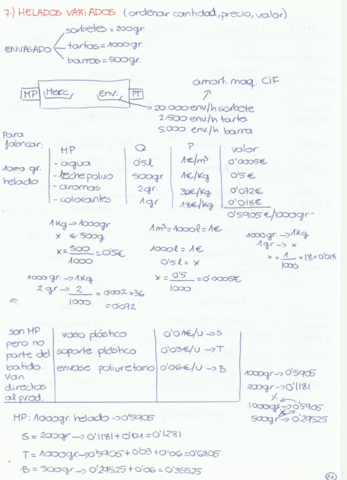 7.) HELADOS VARIADOS (ordenar cantidad, precio, valor)
sorbetes = 200gr.
ENVASADO tartas = 1000gr.
barras = 500gr.
amort. maq. CIF
MP Merc, env. PT
20.000 env/h sorbete
2.500 env/h tarta
5.000 env/h barra
Para fabricar:
MP Q P valor
1000 gr. helado
- agua 0'5l 1€/m³ 0'0005€
- leche polvo 500gr 1€/kg 0'5€
- aromas 2gr. 36€/kg 0'072€
- colorantes 1gr 18€/kg 0'018€
0'5905€/1000gr
1kg → 1000gr
x ← 500g
x = 500/1000 = 0'5€
1m³ = 1000l = 1€
1000l = 1€
0'5l = x
x = 0'5/1000 = 0'0005€
1000gr → 1kg
1gr → x
x = 1/1000 · 18 = 0'018
1000gr → 1kg
2gr → 2/1000 = 0'002 × 36 = 0'072
son MP pero no parte del batido. Van directos al prod.
vaso plástico 0'01€/u → S
soporte plástico 0'03€/u → T
envase poliuretano 0'06€/u → B
1000gr → 0'5905
200gr → 0'1181
1000gr → 0'5905
500gr → 0'29525
MP: 1000gr. helado → 0'5905
S = 200gr → 0'1181 + 0'01 = 0'1281
T = 1000gr → 0'5905 + 0'03 + 0'06 = 0'6805
B = 500gr → 0'29525 + 0'06 = 0'35525